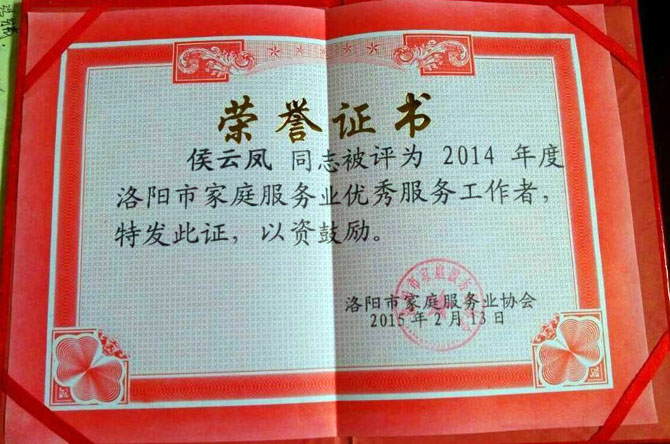 荣誉证书
侯云凤 同志被评为 2014 年度
洛阳市家庭服务业优秀服务工作者，
特发此证，以资鼓励。
洛阳市家庭服务业协会
2015年2月13日